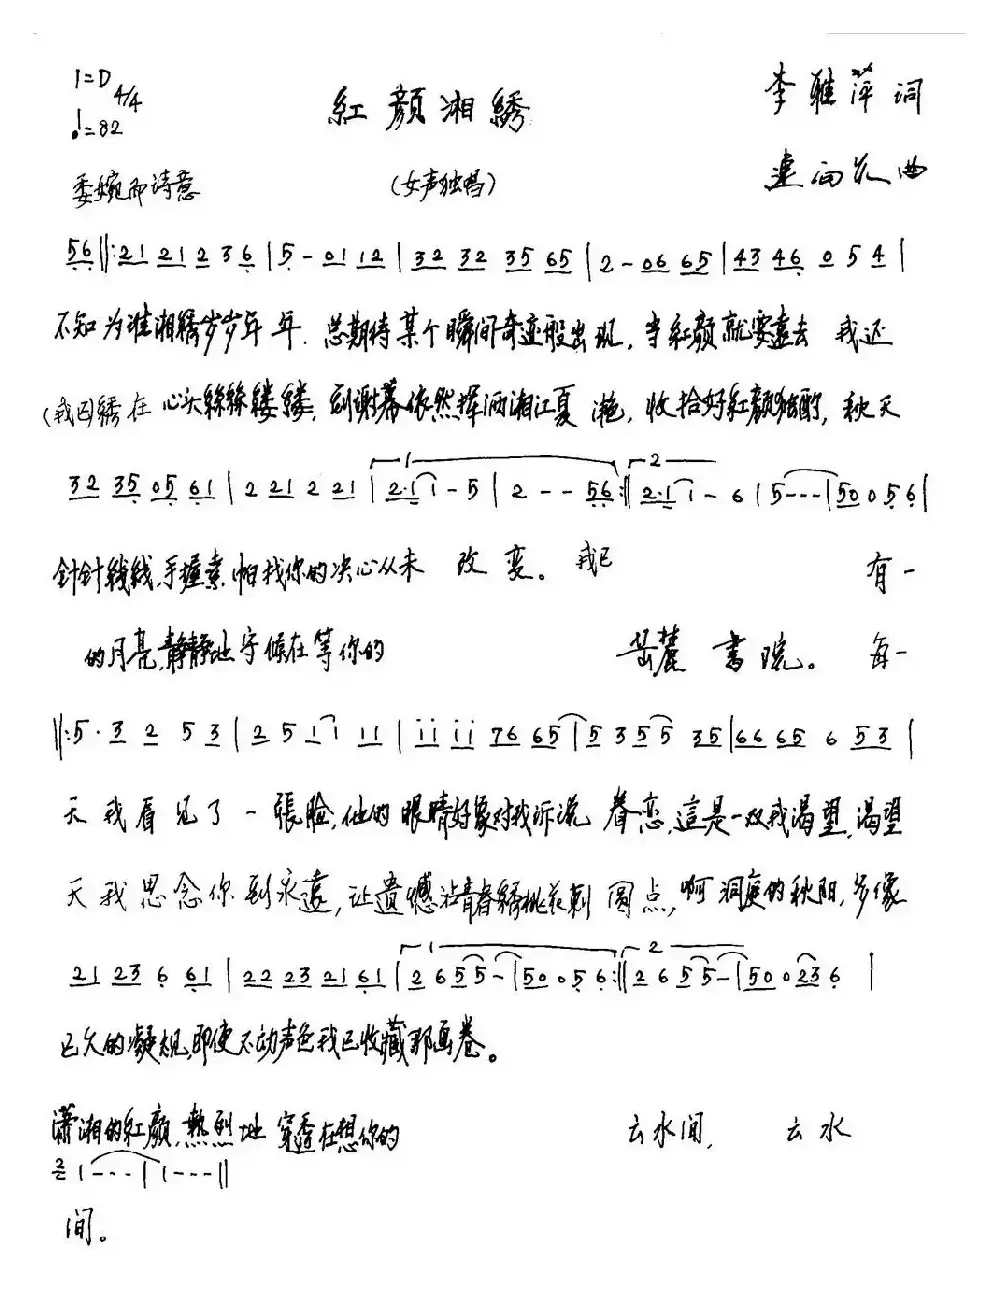 1=D 4/4
♩=82
紅颜湘綉
李雅萍词
委婉而诗意
(女声独唱)
连向农曲
56‖:21 21 2 3 6|5 - 01 12|32 32 35 65|2 - 06 65|43 46 0 5 4|
不知为谁湘綉岁岁年年.总期待某个瞬间奇迹般出现,当紅颜就要远去 我还
(我已)綉在心头絲絲縷縷,到谢幕依然挥洒湘江夏 艳,收拾好紅颜独酌,秋天
32 35 05 61|2 21 2 21|1 2·1 1 - 5|2 - - 56:‖2 2·1 1 - 6|5 - - -|50 0 5 6|
针针线线,手握素帕找你的决心从未 改变。我已 有一
的月亮,静静地守候在等你的 岳麓 書院。 每一
‖:5 · 3 2 5 3|2 5 1 1 11|11 11 76 65|5 3 5 5 35|66 65 6 53|
天我看见了一張脸,他的眼睛好象对我诉说 眷恋,這是一双我渴望,渴望
天我思念你到永遠,让遺憾沾青春綉桃花刺 圆点,啊洞庭的秋阳,多像
21 23 6 61|22 23 21 61|1 2 6 5 5 -|50 0 5 6:‖2 2 6 5 5 -|50 0 23 6|
已久的凝视,即使不动声色我已收藏那画卷。
潇湘的紅颜,熱烈地穿透在想你的 云水间, 云水
2 1 - - -|1 - - -‖
间。